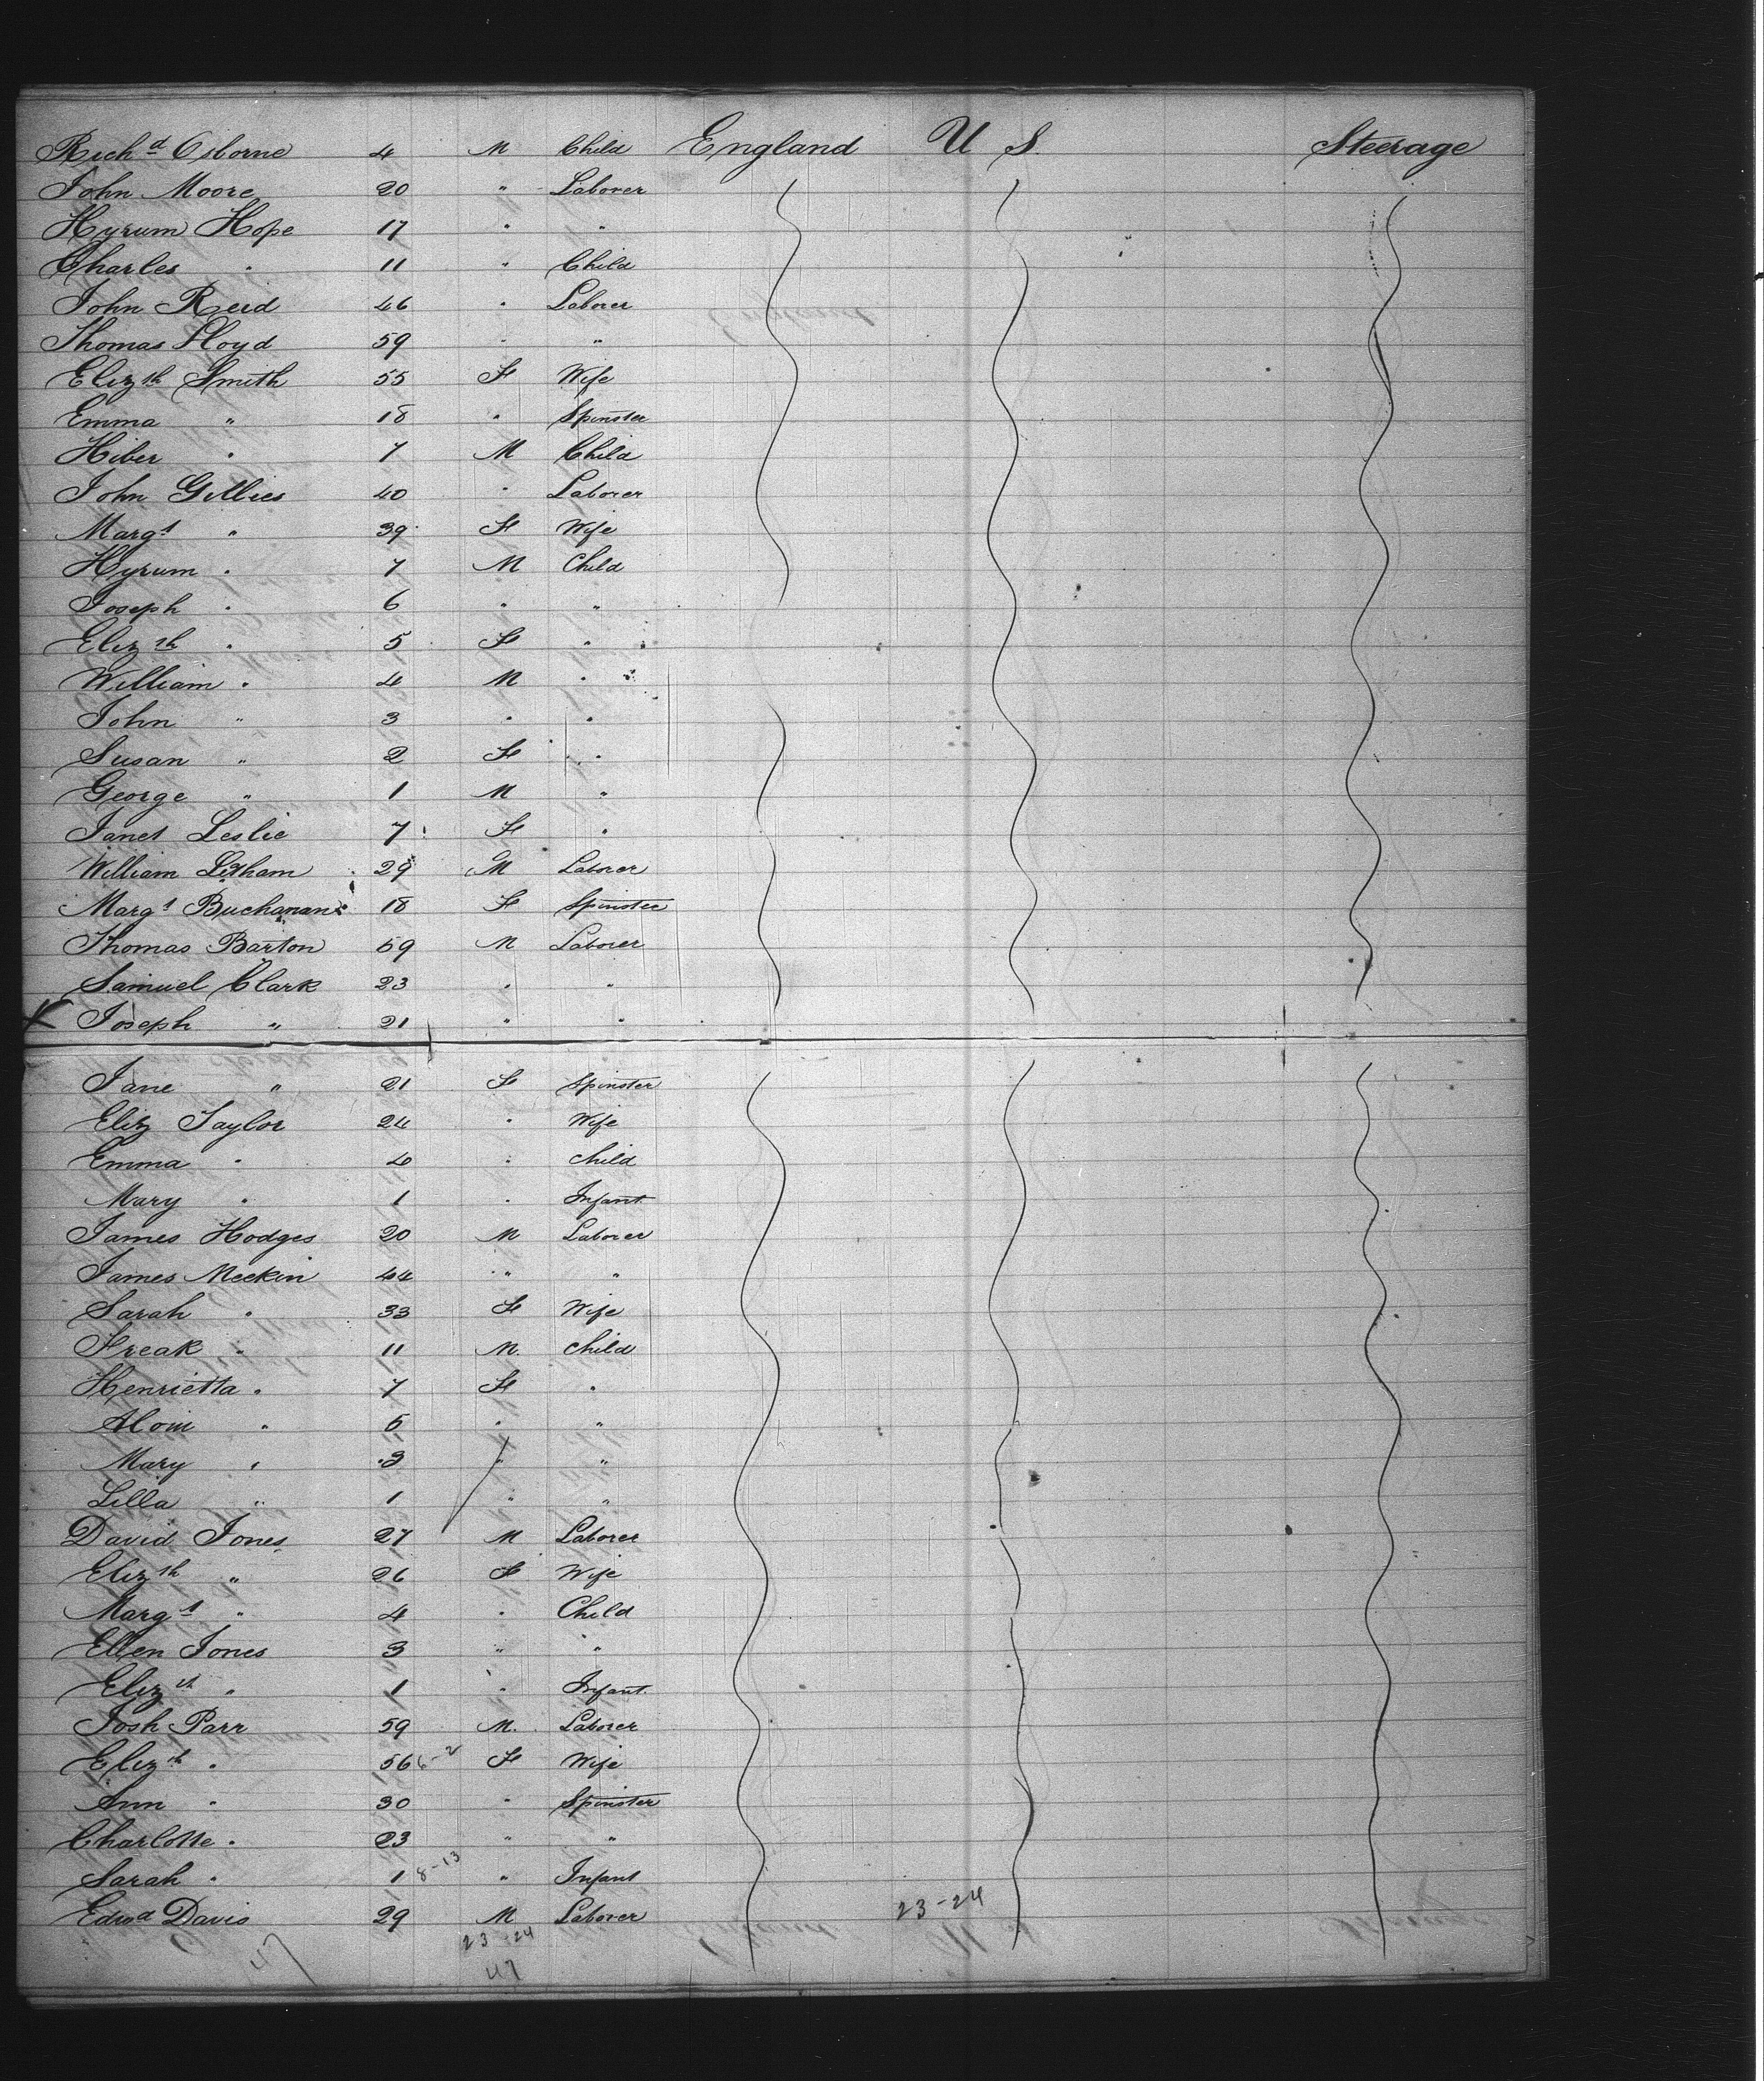 Rich^d Osborne 4 M Child England U S. Steerage
John Moore 20 " Laborer
Hyrum Hope 17 " "
Charles " 11 " Child
John Reid 46 " Laborer
Thomas Lloyd 59 " "
Eliz^th Smith 55 F Wife
Emma " 18 " Spinster
Hiber " 7 M Child
John Gillies 40 " Laborer
Marg^t " 39 F Wife
Hyrum " 7 M Child
Joseph " 6 " "
Eliz^th " 5 F "
William " 4 M "
John " 3 " "
Susan " 2 F "
George " 1 M "
Janet Leslie 7 F "
William 29 M Laborer
Marg^t Buchanan 18 F Spinster
Thomas Barton 59 M Laborer
Samuel Clark 23 " "
Joseph " 21 " "
Jane " 21 F Spinster
Eliz Taylor 24 " Wife
Emma " 4 " Child
Mary " 1 " Infant
James Hodges 20 M Laborer
James Meekin 44 " "
Sarah " 33 F Wife
Freak " 11 M. Child
Henrietta " 7 F "
" " "
Mary " 3 " "
Lilla " 1 " "
David Jones 27 M Laborer
Eliz^th " 26 F Wife
Marg^t " 4 " Child
Ellen Jones 3 " "
Eliz^th " 1 " Infant
Josh Parr 59 M. Laborer
Eliz^th " 56 6-2 F Wife
Ann " 30 " Spinster
Charlotte " 23 " "
Sarah " 1 8-13 " Infant
Edw^d Davis 29 M Laborer 23-24
23-24
47 47